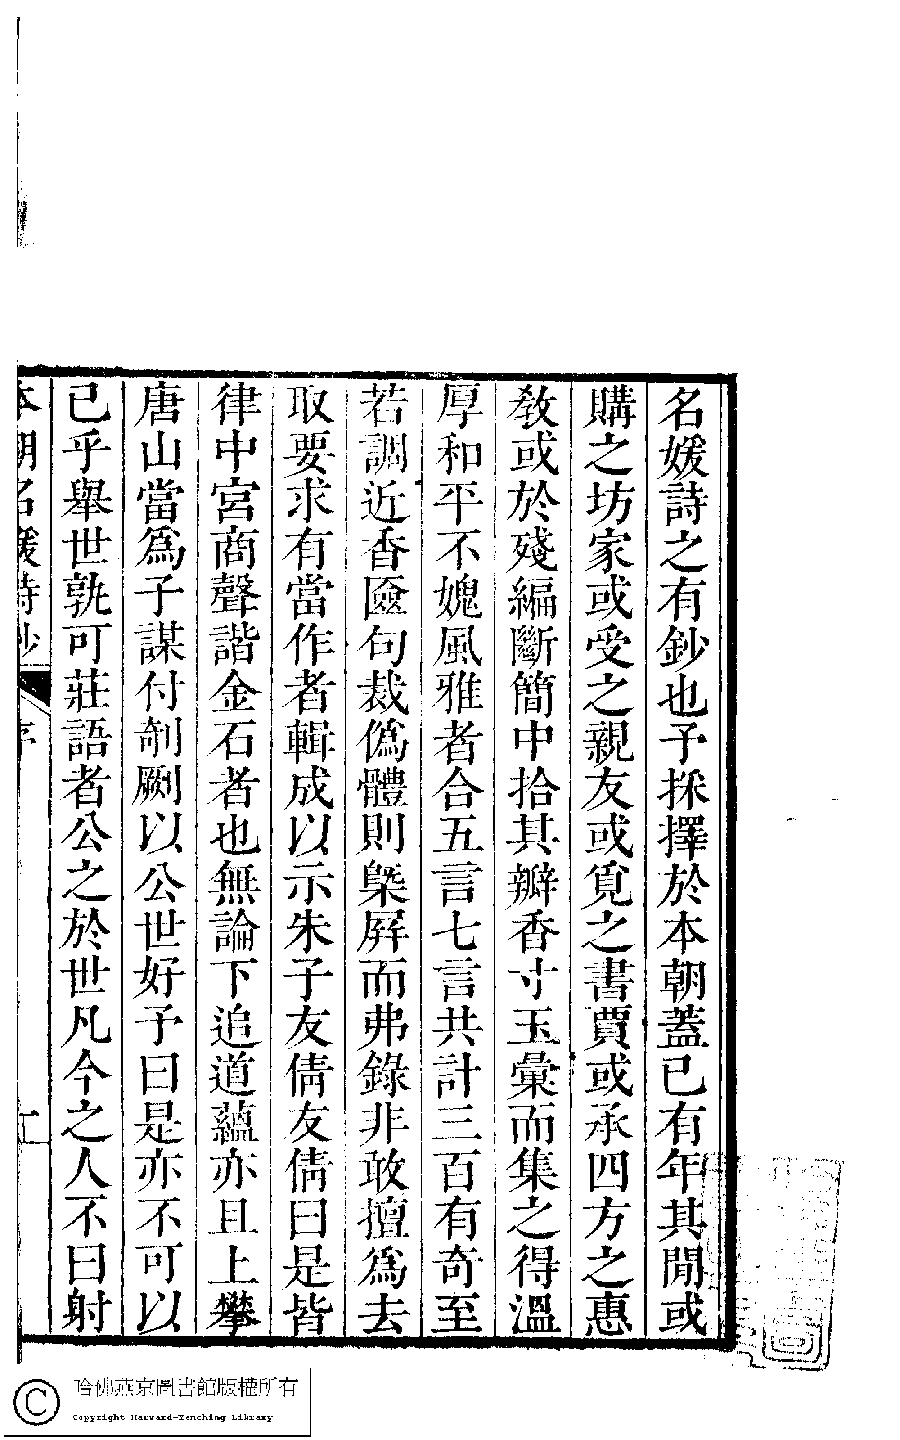 名媛詩之有鈔也予採擇於本朝蓋已有年其閒或
購之坊家或受之親友或覓之書賈或承四方之惠
敎或於殘編斷簡中拾其瓣香寸玉彙而集之得溫
厚和平不媿風雅者合五言七言共計三百有奇至
若調近香匳句裁僞體則槩屛而弗錄非敢擅爲去
取要求有當作者輯成以示朱子友倩友倩曰是皆
律中宮商聲諧金石者也無論下追道蘊亦且上攀
唐山當爲子謀付剞劂以公世好予曰是亦不可以
已乎舉世孰可莊語者公之於世凡今之人不曰射
本朝名媛詩鈔
序
哈佛燕京圖書館版權所有
Copyright Harvard-Yenching Library